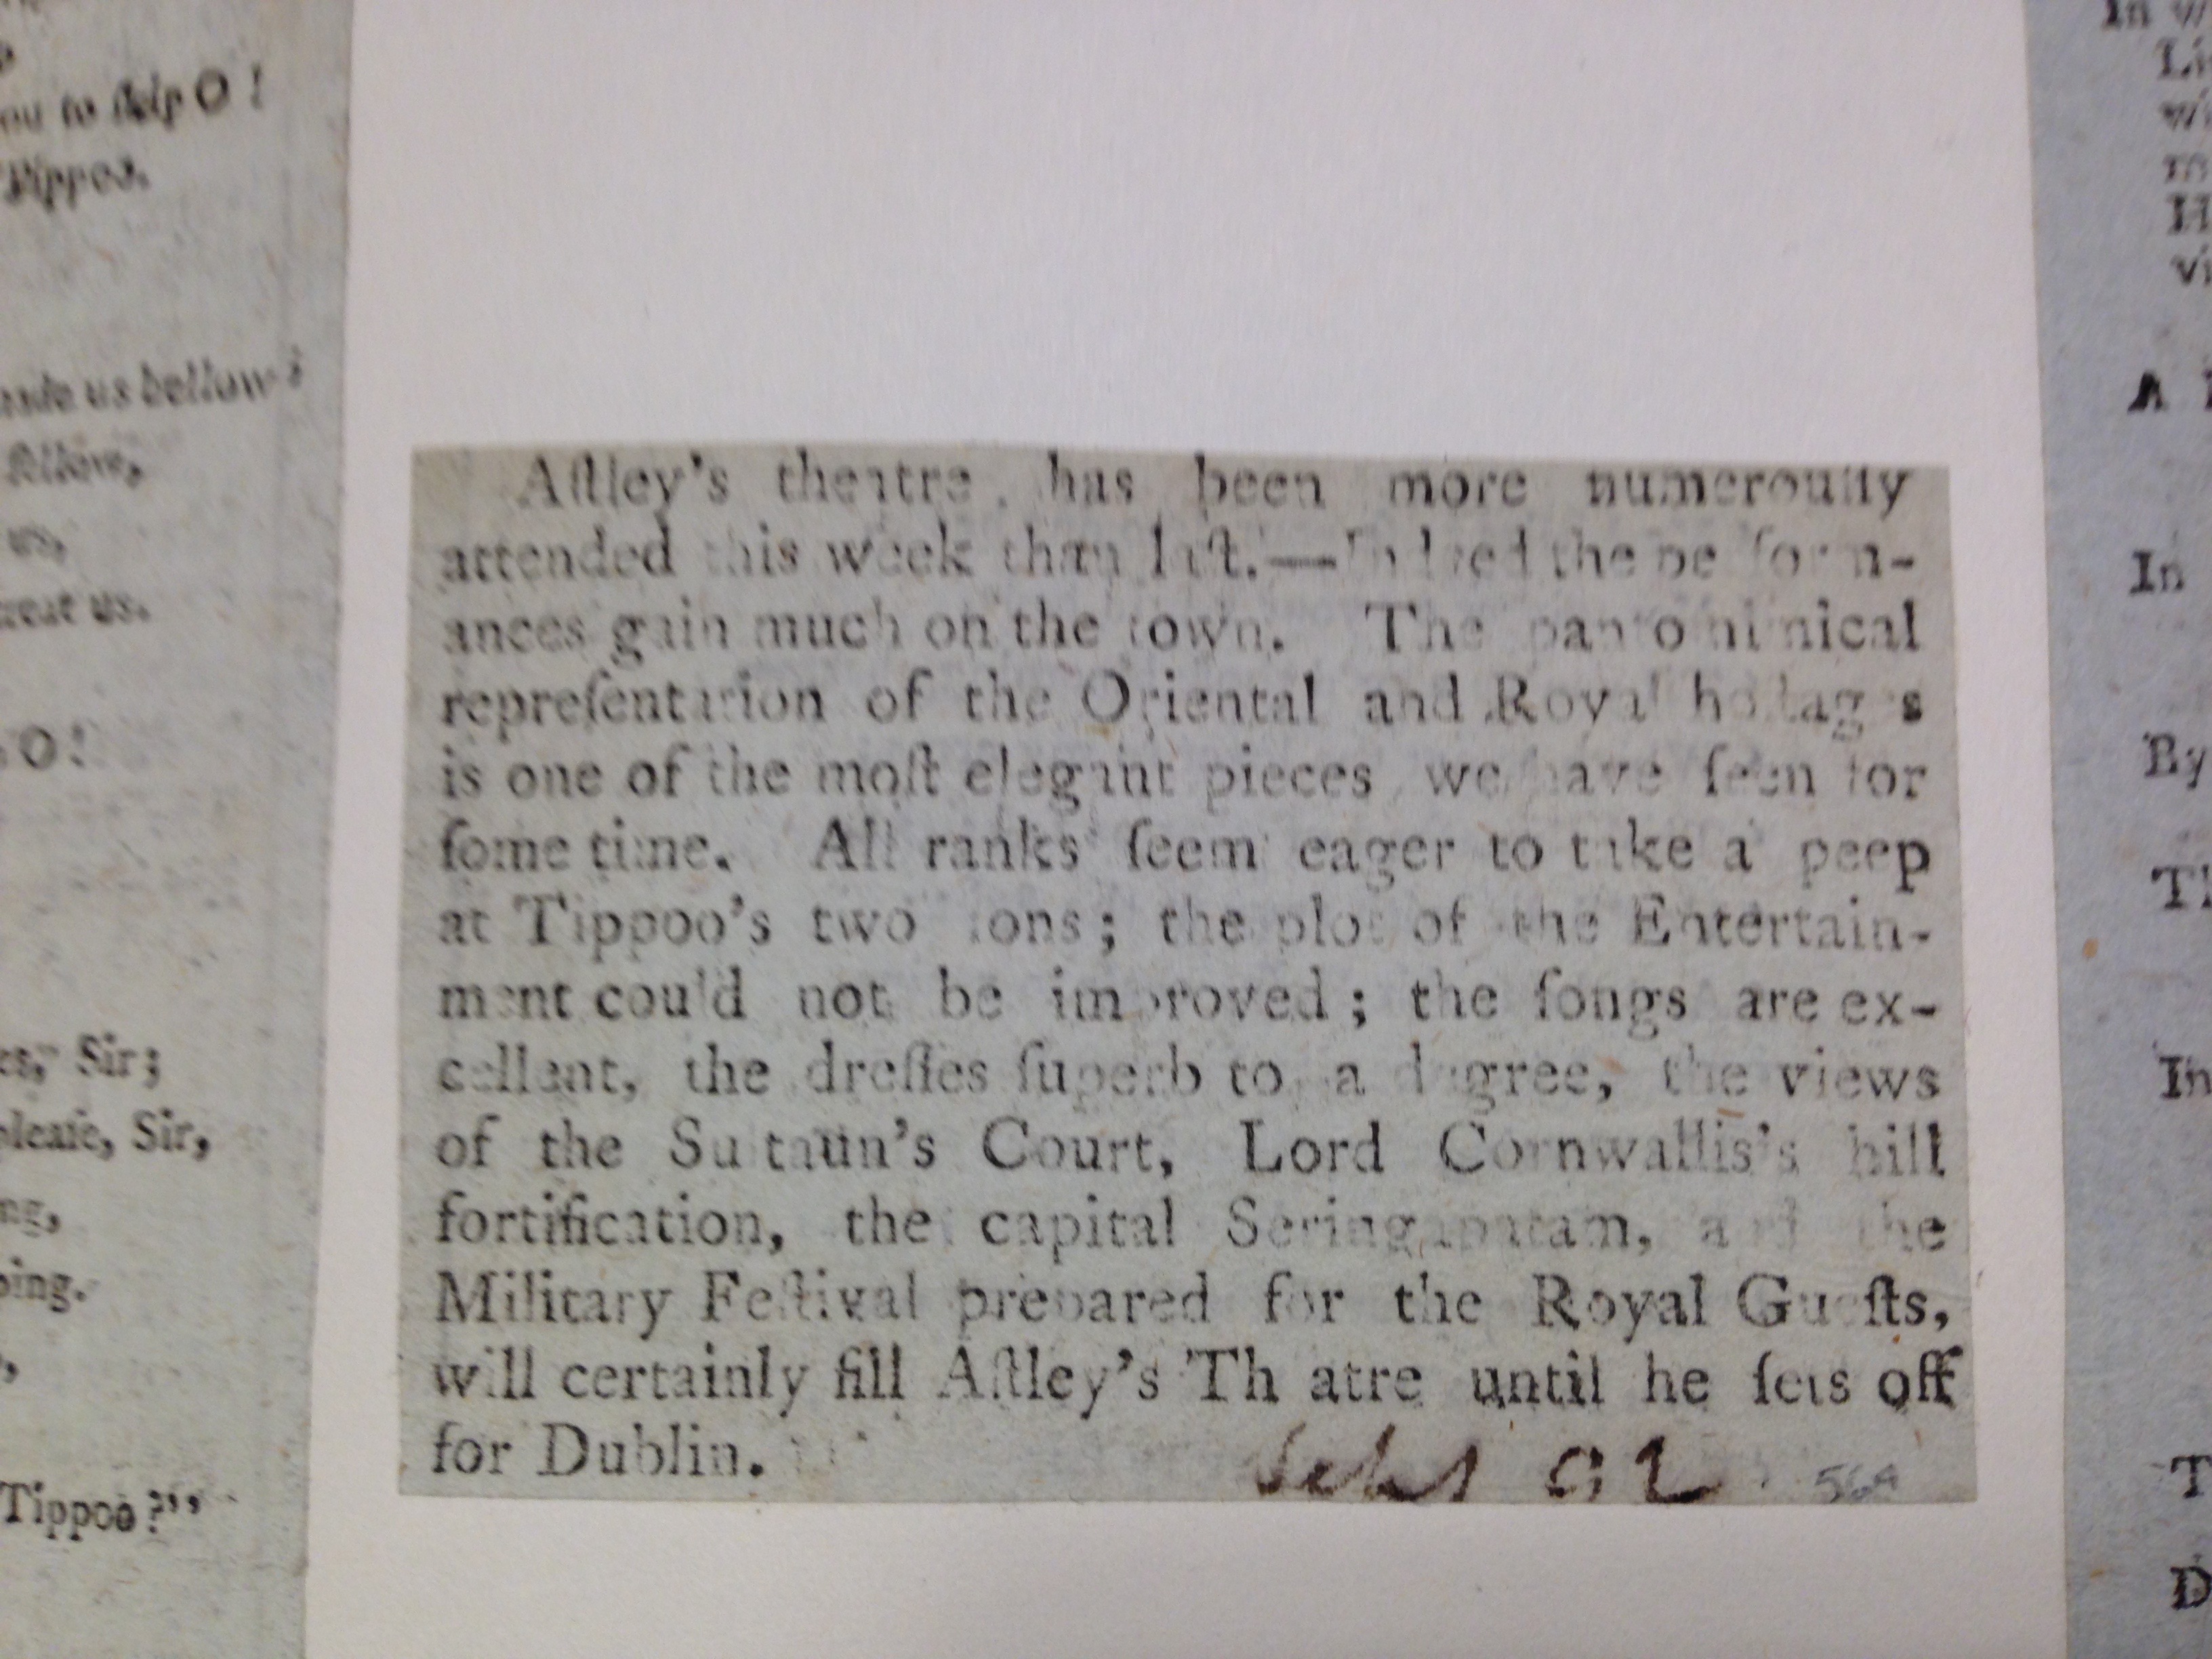 ou to help O !
Tippoo.
made us bellow ?
fellow,
us,
treat us.
O !
Sir ;
pleaſe, Sir,
Tippoo ?"
Aſtley's theatre has been more numerouſly
attended this week than laſt.—Indeed the perform-
ances gain much on the town. The pantomimical
repreſentation of the Oriental and Royal hoſtages
is one of the moſt elegant pieces we have ſeen for
ſome time. All ranks ſeem eager to take a peep
at Tippoo's two ſons ; the plot of the Entertain-
ment could not be improved ; the ſongs are ex-
cellent, the dreſſes ſuperb to a degree, the views
of the Sultaun's Court, Lord Cornwallis's hill
fortification, the capital Seringapatam, and the
Military Feſtival prepared for the Royal Gueſts,
will certainly fill Aſtley's Theatre until he ſets off
for Dublin.
Sept 92
56A
In
A
In
By
In